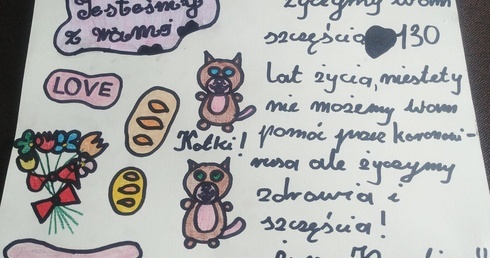 Jesteśmy
z wami
LOVE
Kotki!
życzymy wam
szczęścia 130
lat życia, niestety
nie możemy wam
pomóc przez koronawi-
rusa ale życzymy
zdrowia i
szczęścia!